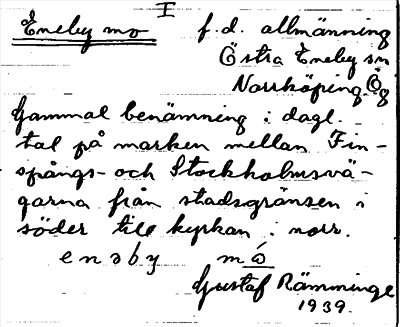 I
Eneby mo f.d. allmänning
Östra Eneby sn
Norrköping Ög
Gammal benämning i dagl.
tal på marken mellan Fin-
spångs- och Stockholmsvä-
garna från stadsgränsen i
söder till kyrkan i norr.
enəby mó
Gustaf Rämminge
1939.